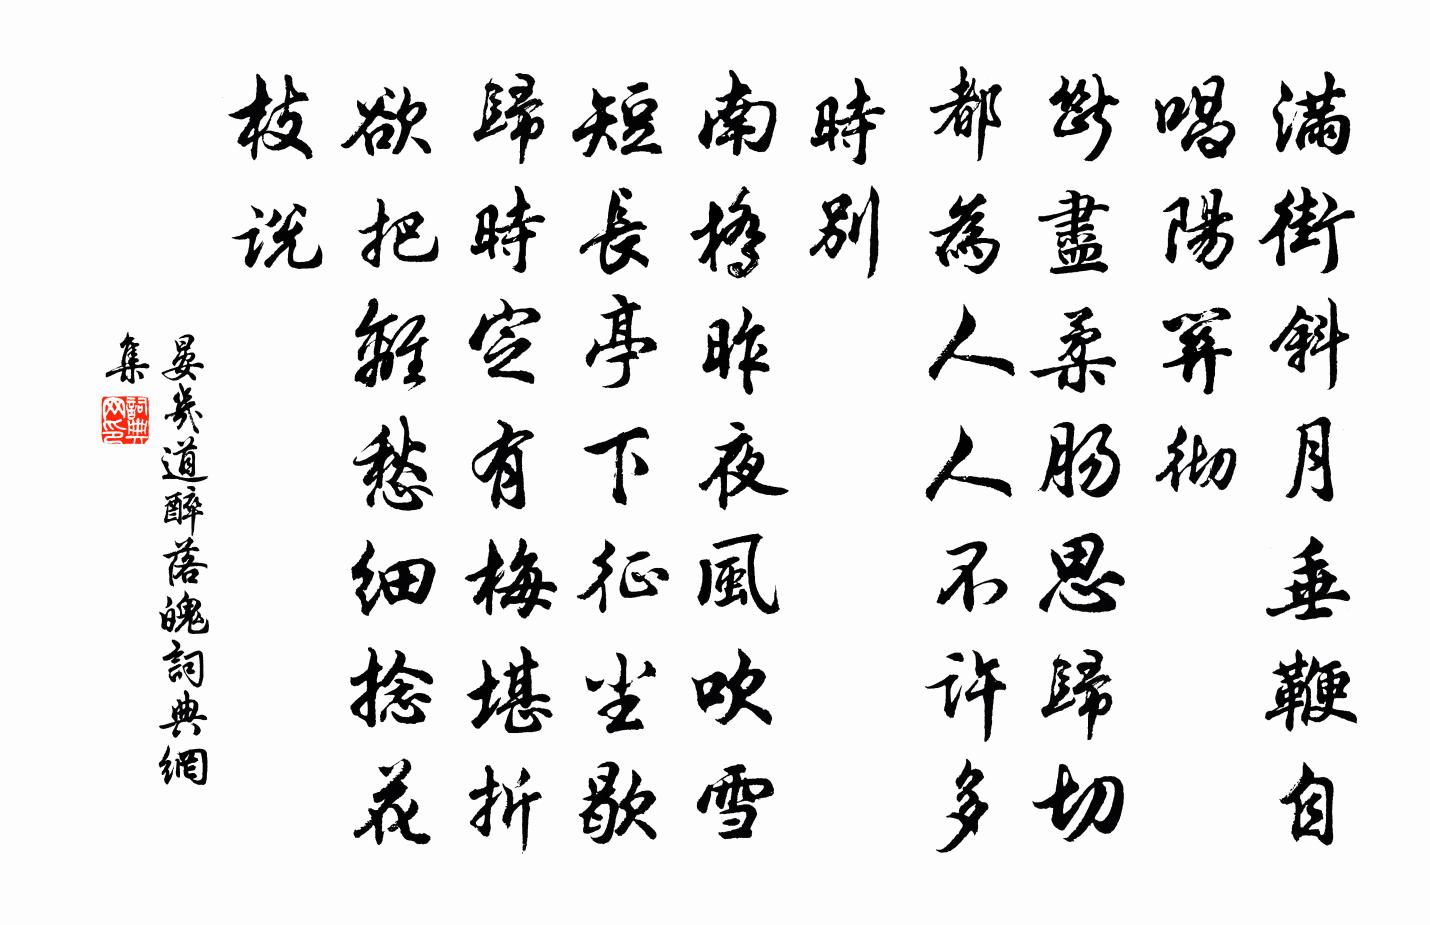 滿街斜月垂鞭自
唱陽關徹
斷盡柔腸思歸切
都為人人不許多
時別
南橋昨夜風吹雪
短長亭下征尘歇
歸時定有梅堪折
欲把離愁細捻花
枝說
晏幾道醉落魄詞典網
集
詞典网印